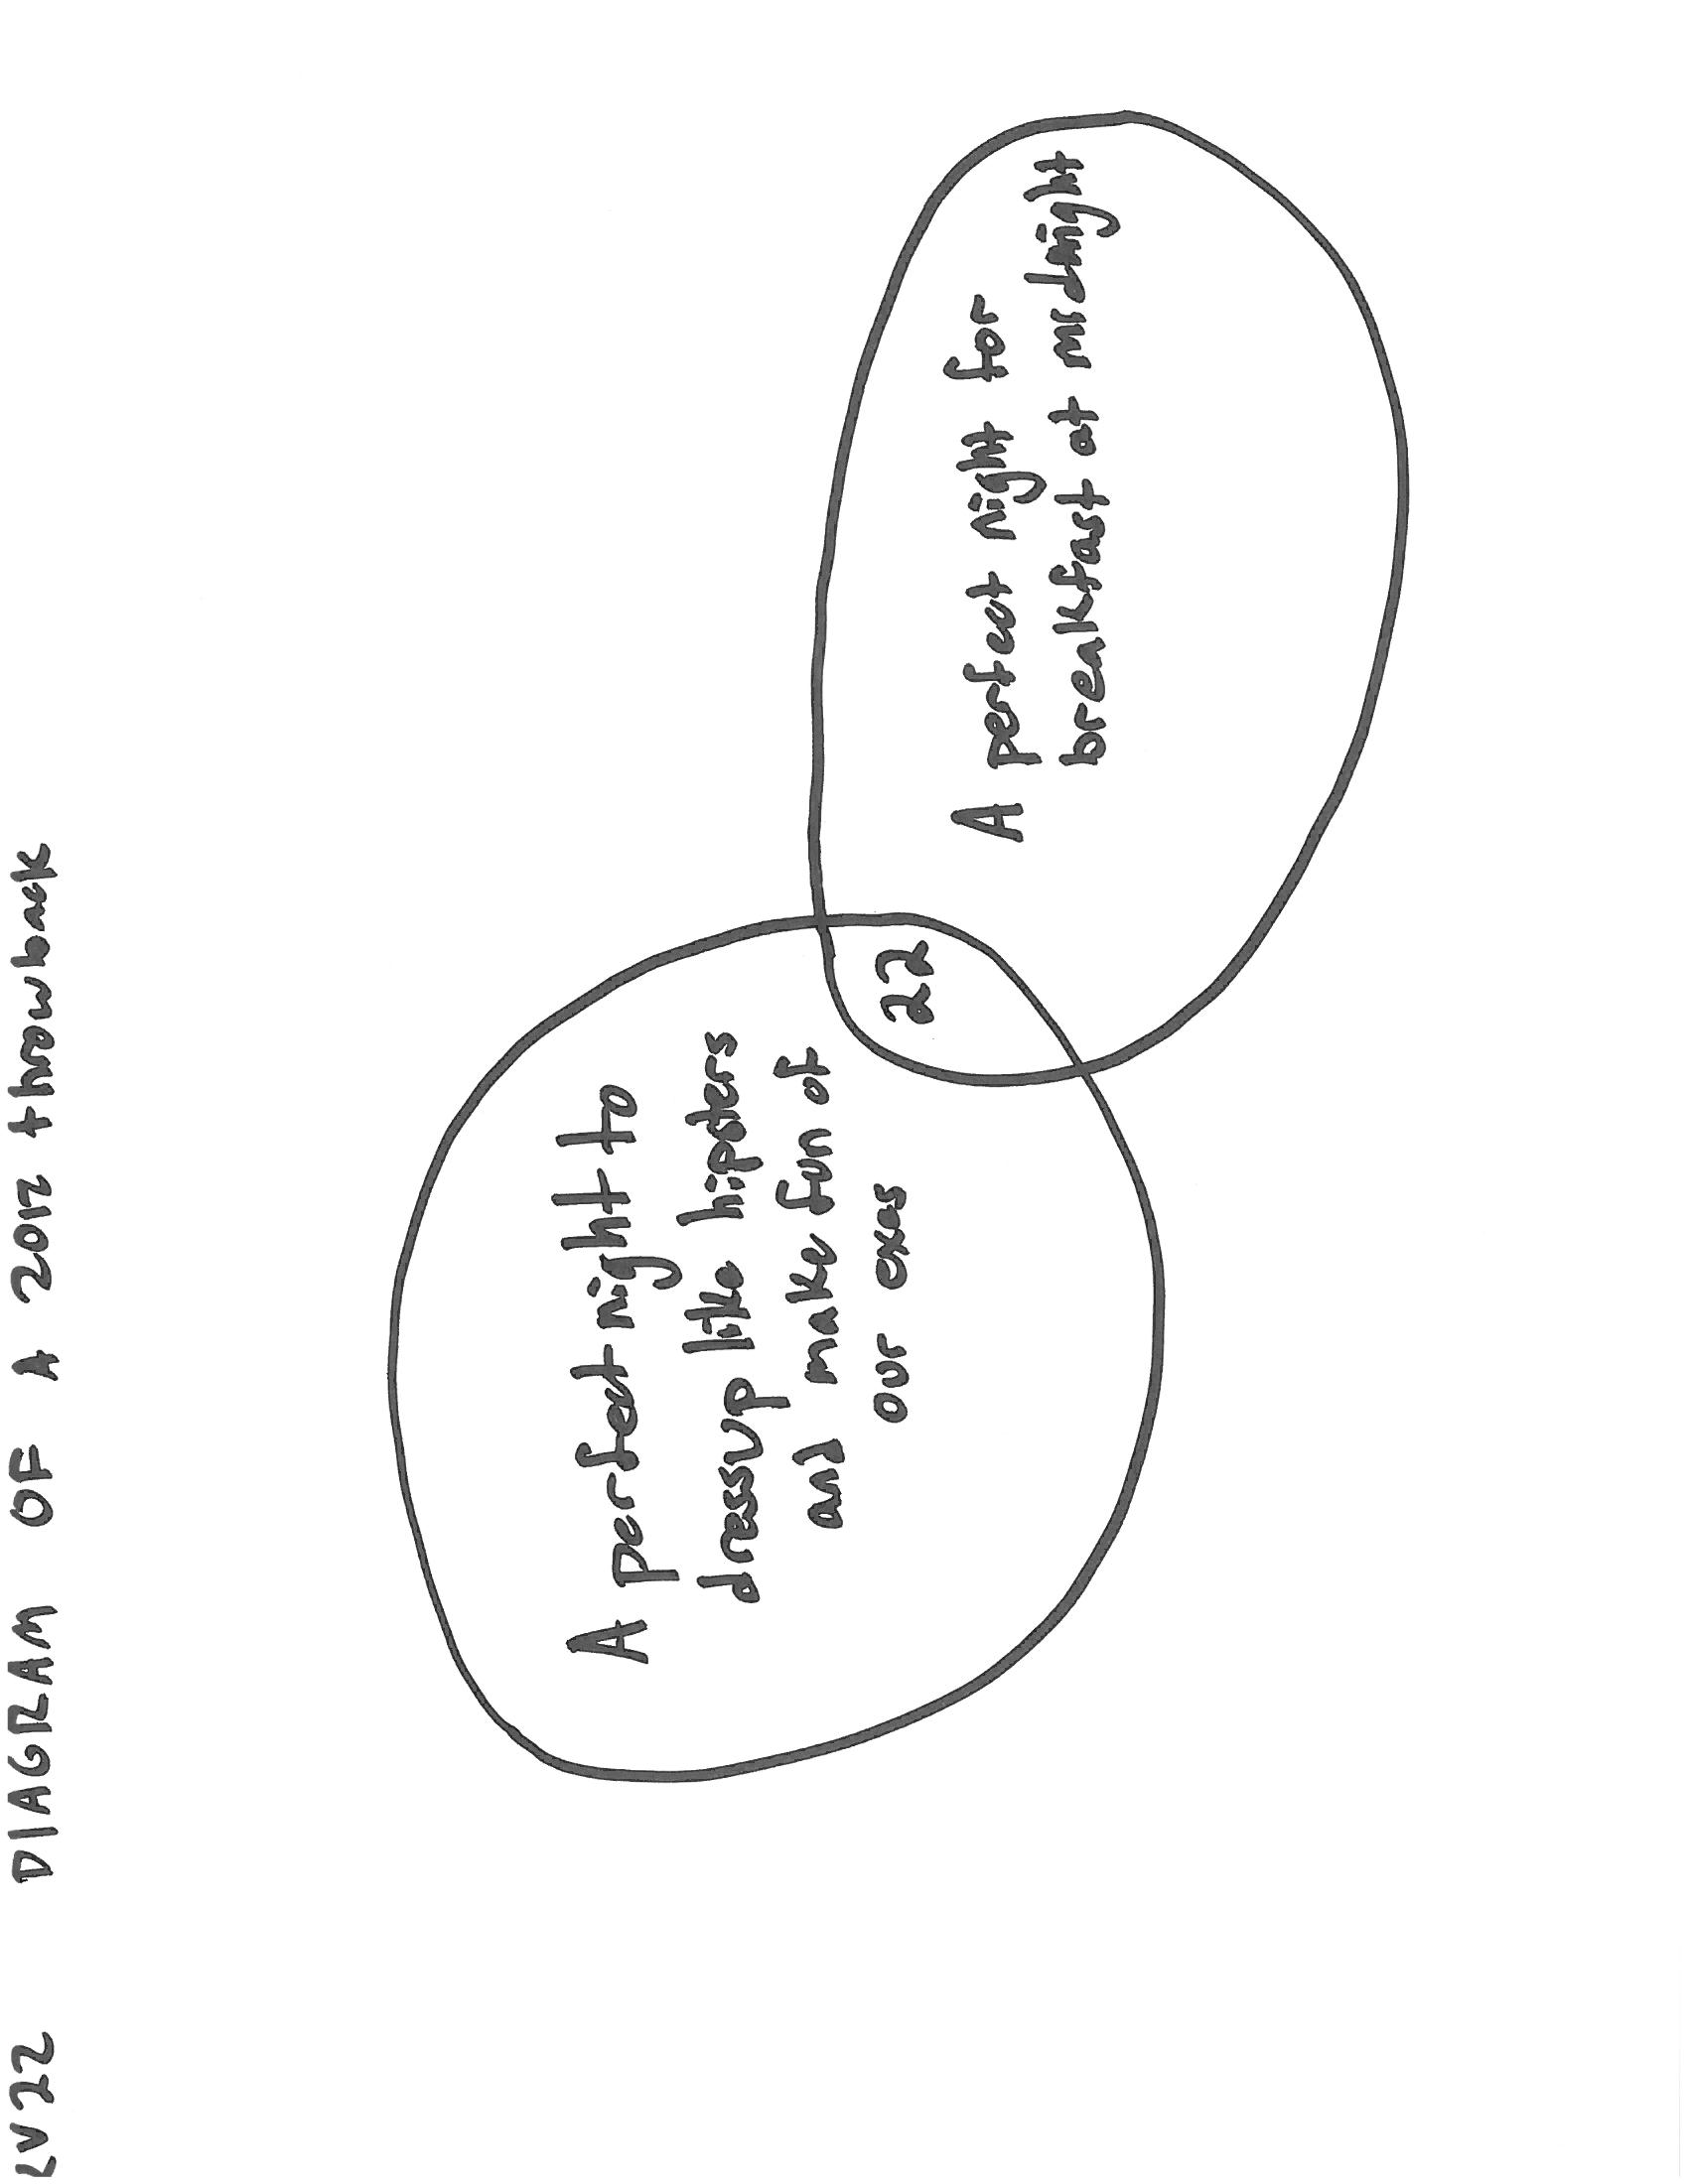 LV22 DIAGRAM OF A 2012 throwback
A perfect night to
dress up like hipsters
and make fun of
our exes
22
A perfect night for
breakfast at midnight